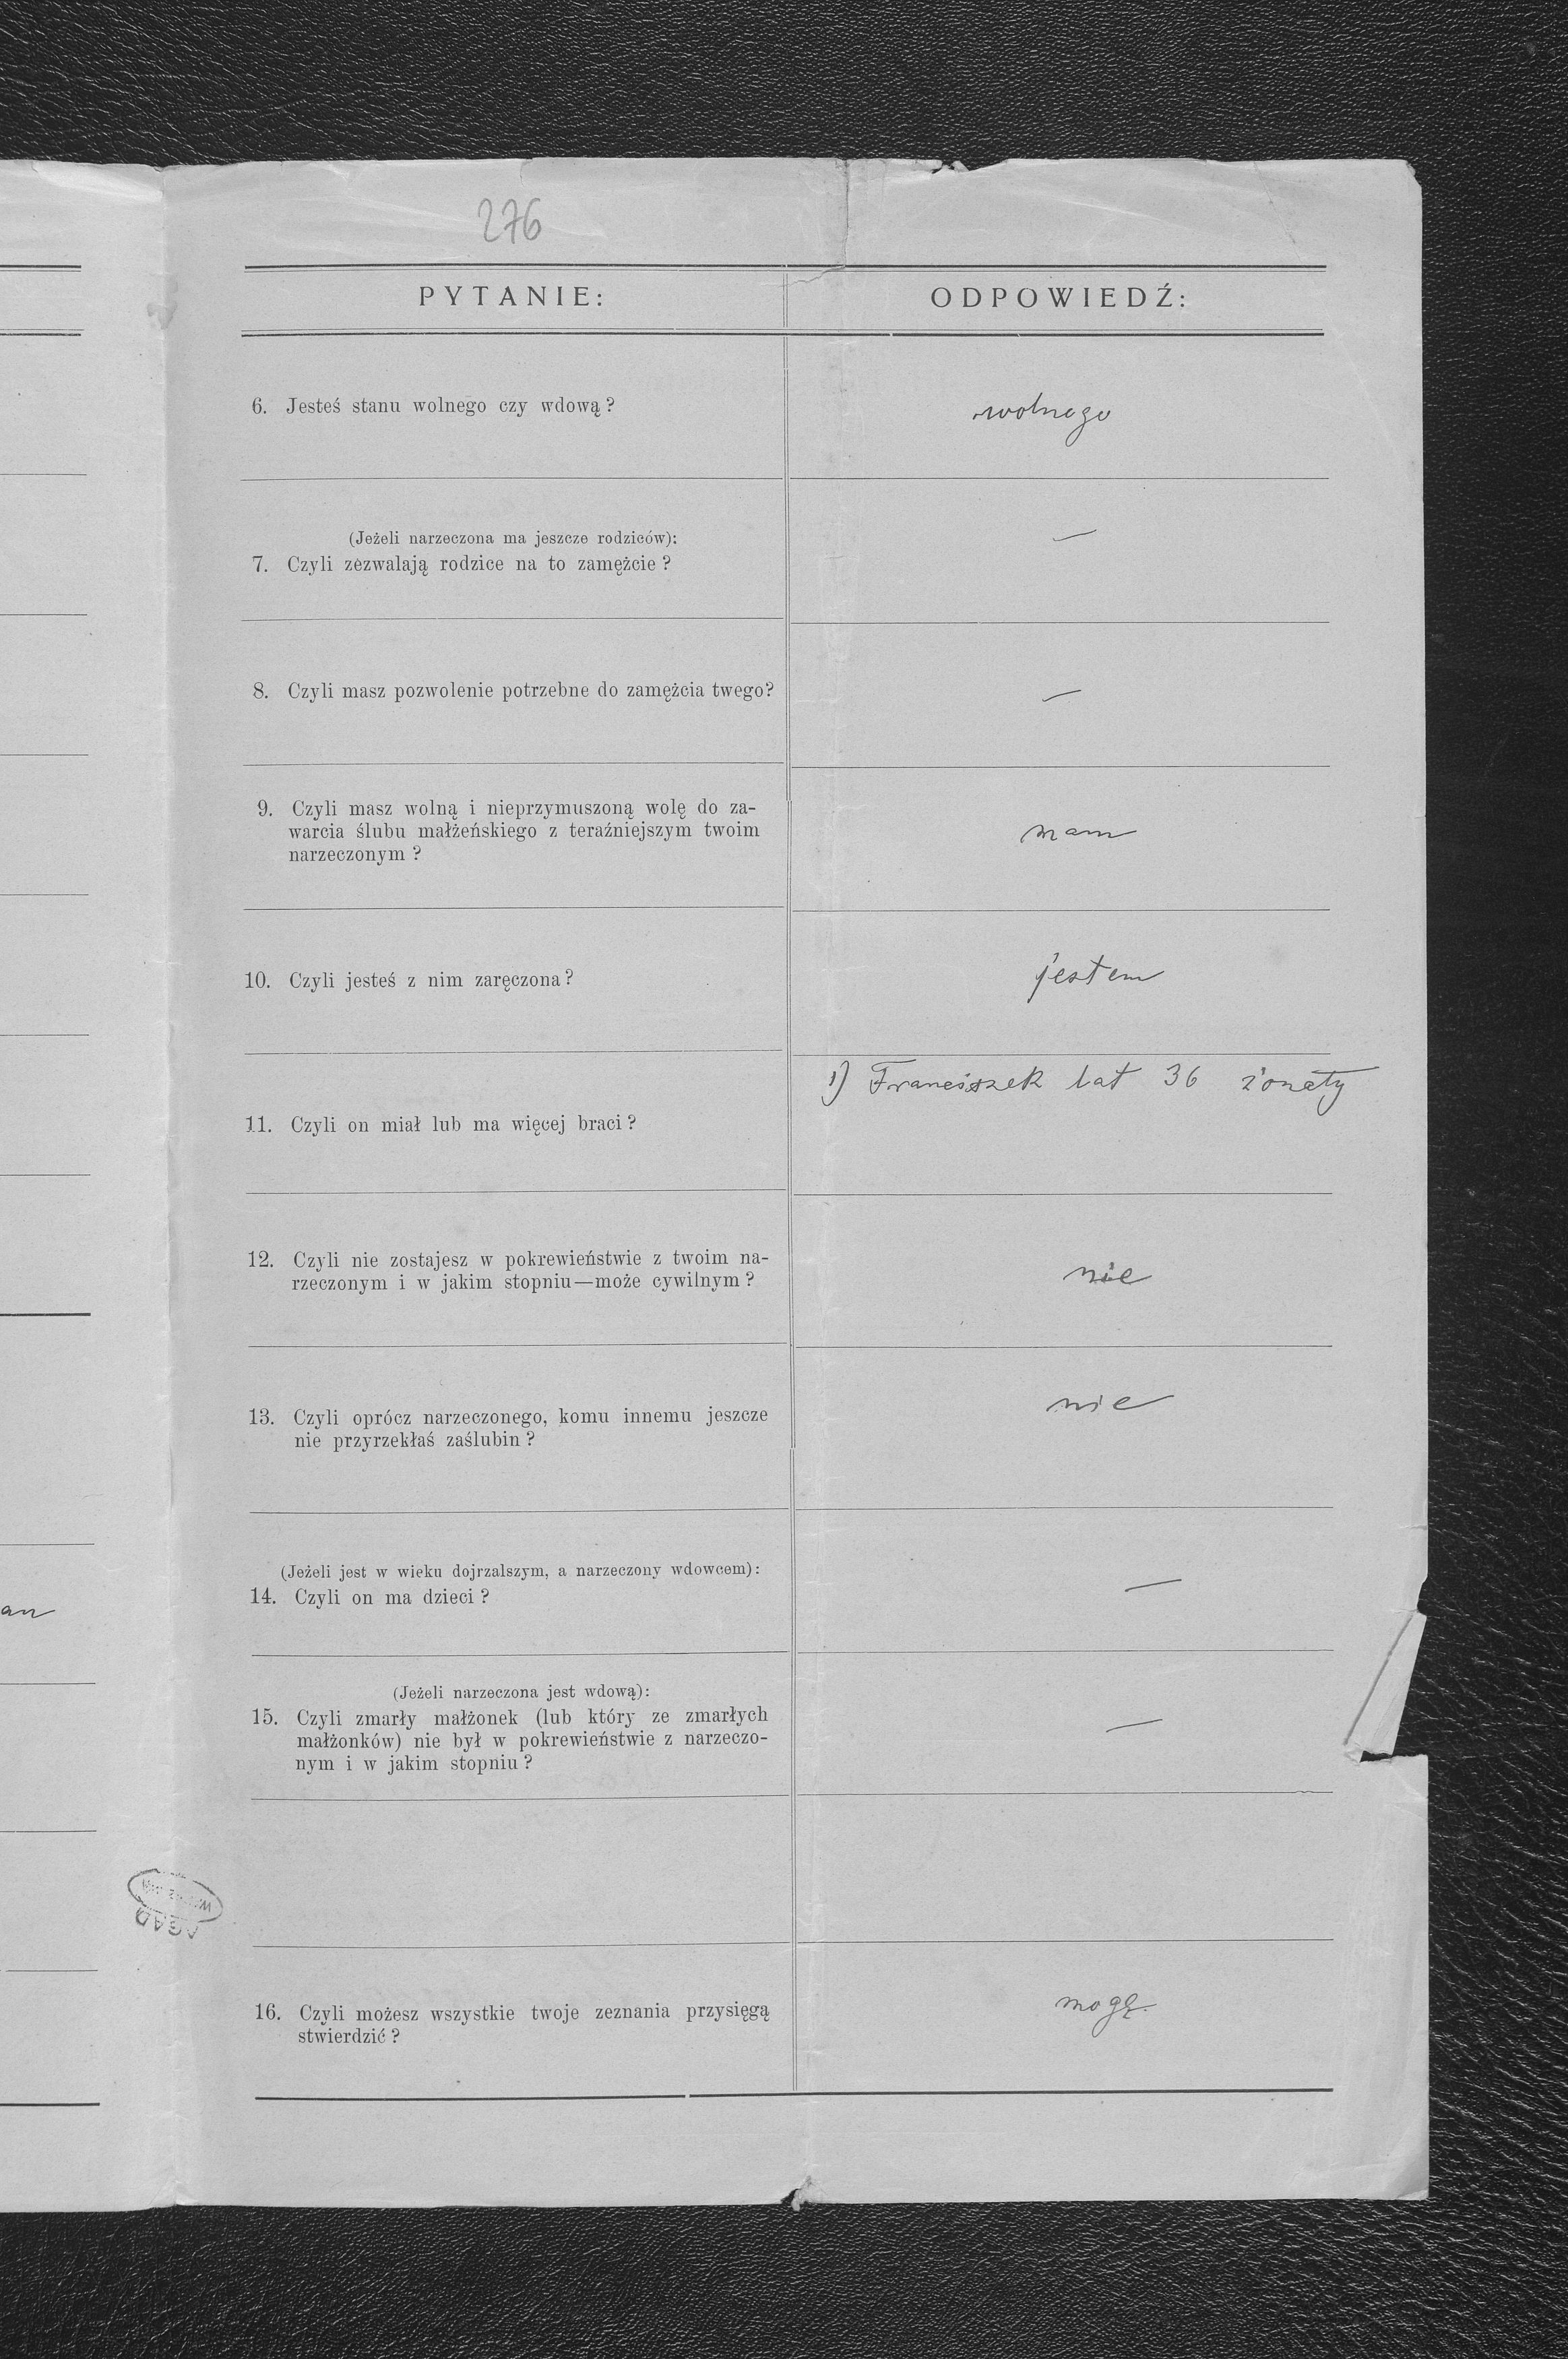 276
PYTANIE:
ODPOWIEDŹ:
6. Jesteś stanu wolnego czy wdową?
wolnego
(Jeżeli narzeczona ma jeszcze rodziców):
7. Czyli zezwalają rodzice na to zamężcie?
—
8. Czyli masz pozwolenie potrzebne do zamężcia twego?
—
9. Czyli masz wolną i nieprzymuszoną wolę do za-
warcia ślubu małżeńskiego z teraźniejszym twoim
narzeczonym?
mam
10. Czyli jesteś z nim zaręczona?
jestem
11. Czyli on miał lub ma więcej braci?
1) Franciszek lat 36 żonaty
12. Czyli nie zostajesz w pokrewieństwie z twoim na-
rzeczonym i w jakim stopniu—może cywilnym?
nie
13. Czyli oprócz narzeczonego, komu innemu jeszcze
nie przyrzekłaś zaślubin?
nie
(Jeżeli jest w wieku dojrzalszym, a narzeczony wdowcem):
14. Czyli on ma dzieci?
—
(Jeżeli narzeczona jest wdową):
15. Czyli zmarły małżonek (lub który ze zmarłych
małżonków) nie był w pokrewieństwie z narzeczo-
nym i w jakim stopniu?
—
16. Czyli możesz wszystkie twoje zeznania przysięgą
stwierdzić?
mogę.
AGAD